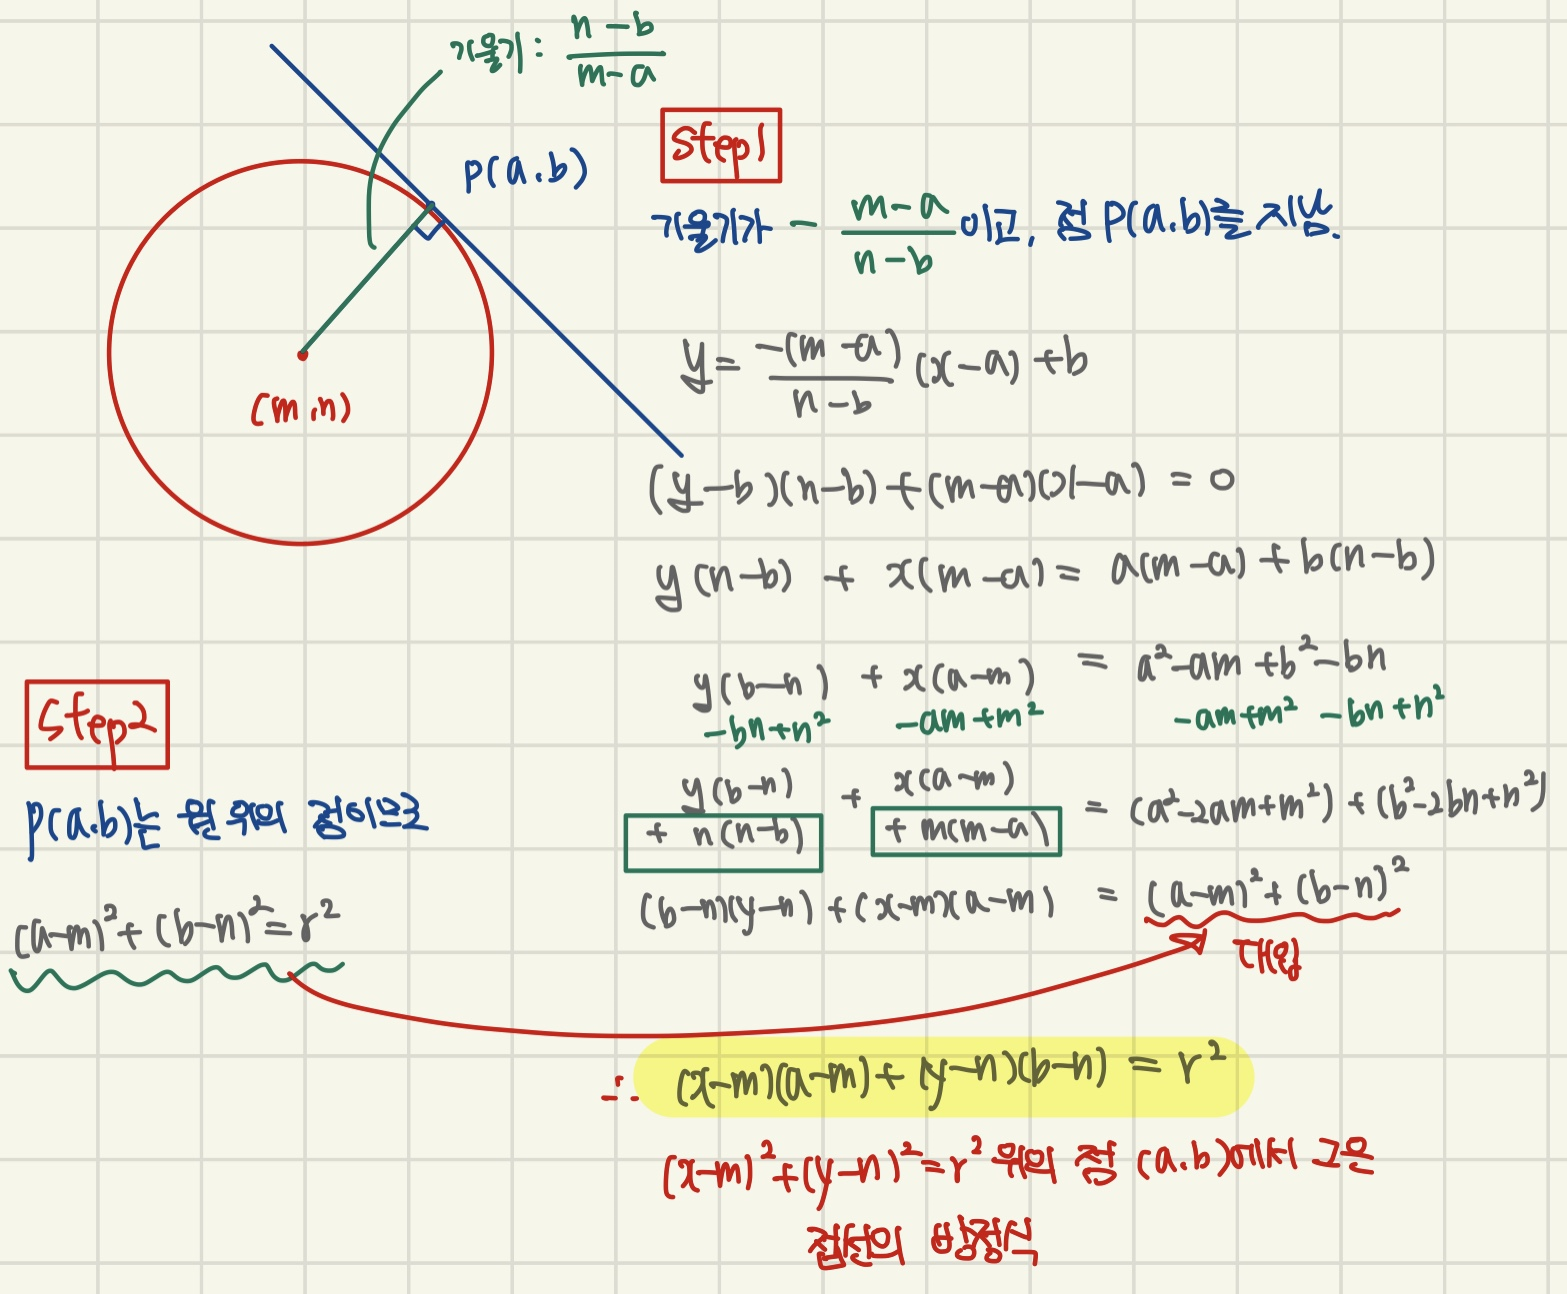 기울기: (n-b)/(m-a)
P(a.b)
(m.n)
Step1
기울기가 - (m-a)/(n-b) 이고, 점 P(a.b)를 지남.
y = -(m-a)/(n-b) (x-a) + b
(y-b)(n-b) + (m-a)(x-a) = 0
y(n-b) + x(m-a) = a(m-a) + b(n-b)
y(b-n) + x(a-m) = a²-am+b²-bn
-bn+n² -am+m² -am+m² -bn+n²
y(b-n) + x(a-m) = (a²-2am+m²) + (b²-2bn+n²)
+ n(n-b) + m(m-a)
(b-n)(y-n) + (x-m)(a-m) = (a-m)² + (b-n)²
대입
Step2
P(a.b)는 원 위의 점이므로
(a-m)² + (b-n)² = r²
∴ (x-m)(a-m) + (y-n)(b-n) = r²
(x-m)² + (y-n)² = r² 위의 점 (a.b)에서 그은
접선의 방정식